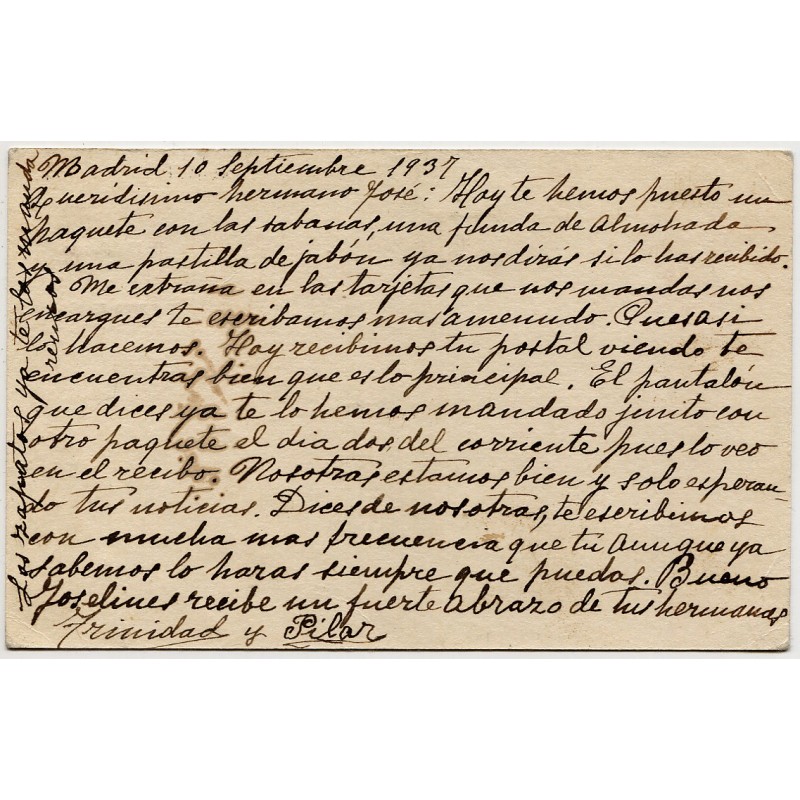 Madrid 10 Septiembre 1937
Queridisimo hermano José: Hoy te hemos puesto un
paquete con las sabanas, una funda de Almohada
y una pastilla de jabón ya nos dirás si lo has recibido.
Me extraña en las tarjetas que nos mandas nos
encargues te escribamos mas amenudo. Pues asi
lo hacemos. Hoy recibimos tu postal viendo te
encuentras bien que es lo principal. El pantalón
que dices ya te lo hemos mandado junto con
otro paquete el dia dos del corriente pues lo veo
en el recibo. Nosotras estamos bien y solo esperan-
do tus noticias. Dices de nosotras, te escribimos
con mucha mas frecuencia que tu Aunque ya
sabemos lo haras siempre que puedas. Bueno
Joselines recibe un fuerte Abrazo de tus hermanas
Trinidad y Pilar
Los zapatos ya te los manda
remos